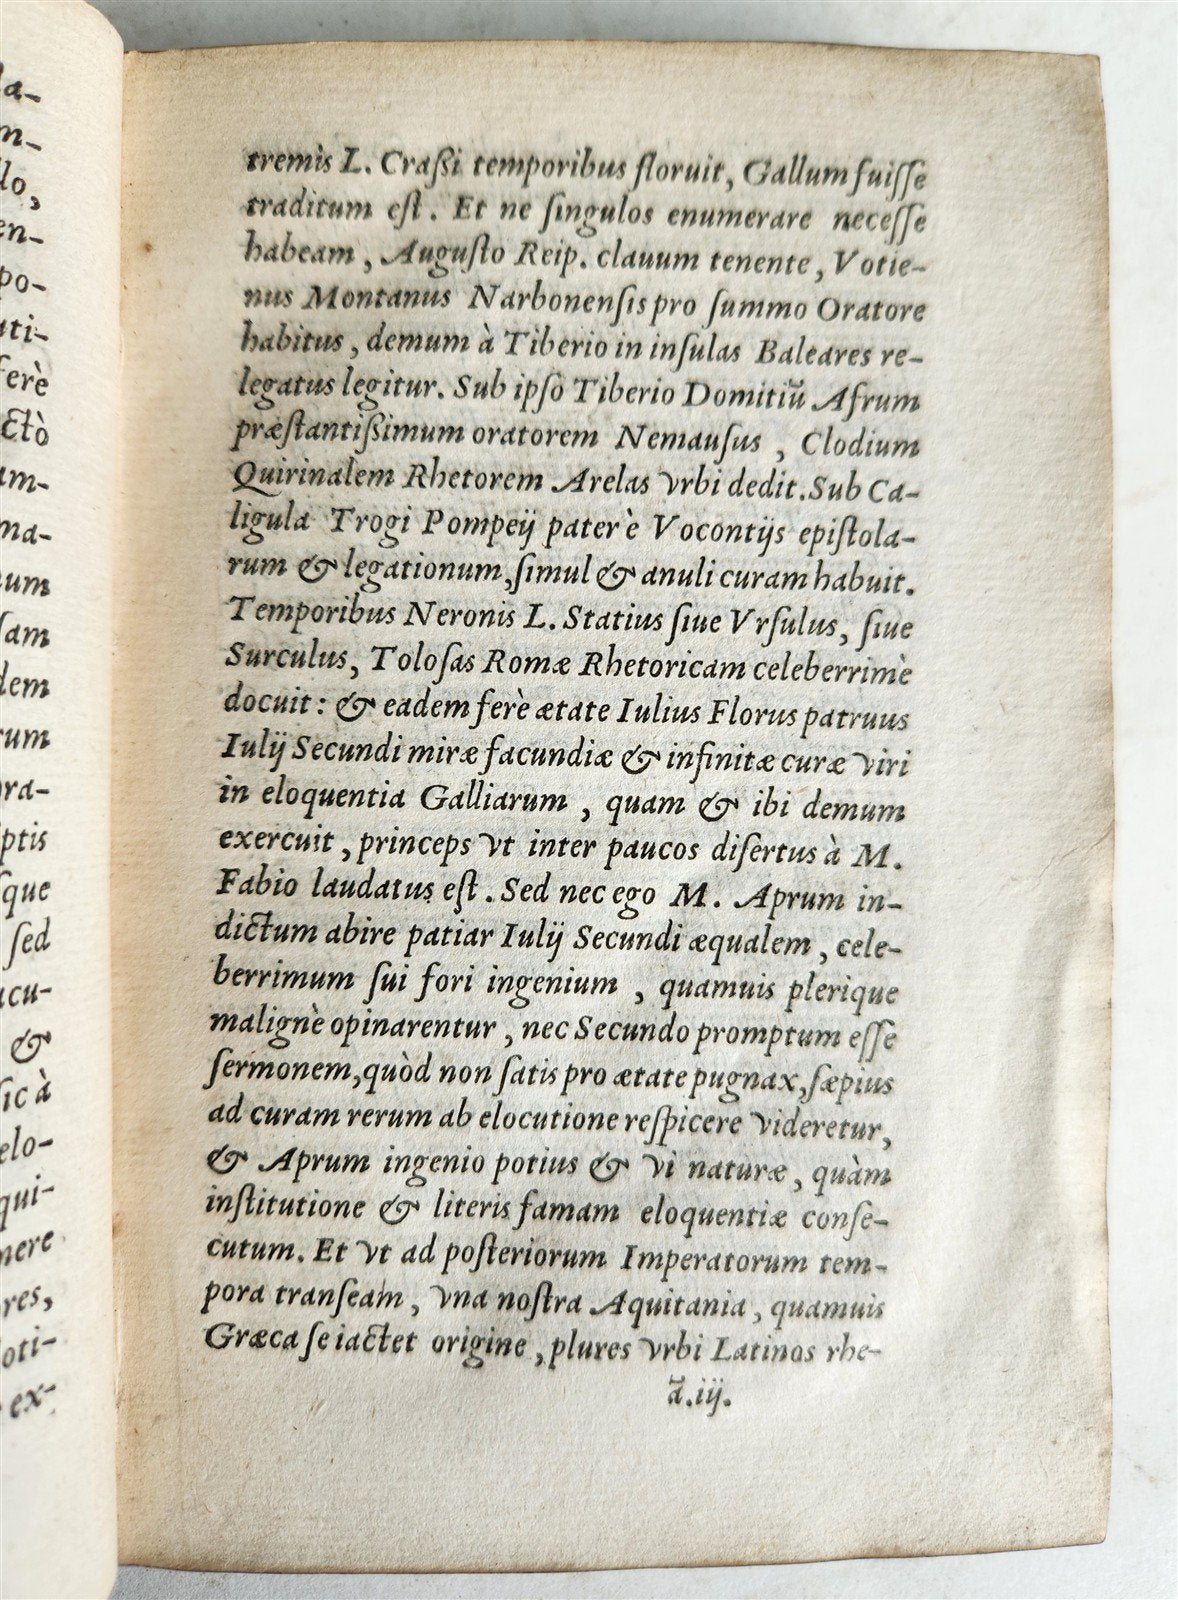 la-
m-
lo,
en-
po-
uti-
ferè
ctò
um-
ma-
num
ſam
dem
rum
ora-
ptis
ſque
ſed
acu-
&
ſic à
elo-
qui-
mere
res,
oti-
ex-
tremis L. Craßi temporibus floruit, Gallum fuiſſe
traditum eſt. Et ne ſingulos enumerare neceſſe
habeam, Auguſto Reip. clauum tenente, Votie-
nus Montanus Narbonenſis pro ſummo Oratore
habitus, demum à Tiberio in inſulas Baleares re-
legatus legitur. Sub ipſo Tiberio Domitiū Afrum
præſtantißimum oratorem Nemauſus, Clodium
Quirinalem Rhetorem Arelas vrbi dedit. Sub Ca-
ligula Trogi Pompeij pater è Vocontijs epiſtola-
rum & legationum, ſimul & anuli curam habuit.
Temporibus Neronis L. Statius ſiue Vrſulus, ſiue
Surculus, Toloſas Romæ Rhetoricam celeberrimè
docuit: & eadem ferè ætate Iulius Florus patruus
Iulij Secundi miræ facundiæ & infinitæ curæ viri
in eloquentia Galliarum, quam & ibi demum
exercuit, princeps vt inter paucos diſertus à M.
Fabio laudatus eſt. Sed nec ego M. Aprum in-
dictum abire patiar Iulij Secundi æqualem, cele-
berrimum ſui fori ingenium, quamuis plerique
malignè opinarentur, nec Secundo promptum eſſe
ſermonem, quòd non ſatis pro ætate pugnax, ſæpius
ad curam rerum ab elocutione reſpicere videretur,
& Aprum ingenio potius & vi naturæ, quàm
inſtitutione & literis famam eloquentiæ conſe-
cutum. Et vt ad poſteriorum Imperatorum tem-
pora tranſeam, vna noſtra Aquitania, quamuis
Græca ſe iactet origine, plures vrbi Latinos rhe-
ā.iij.